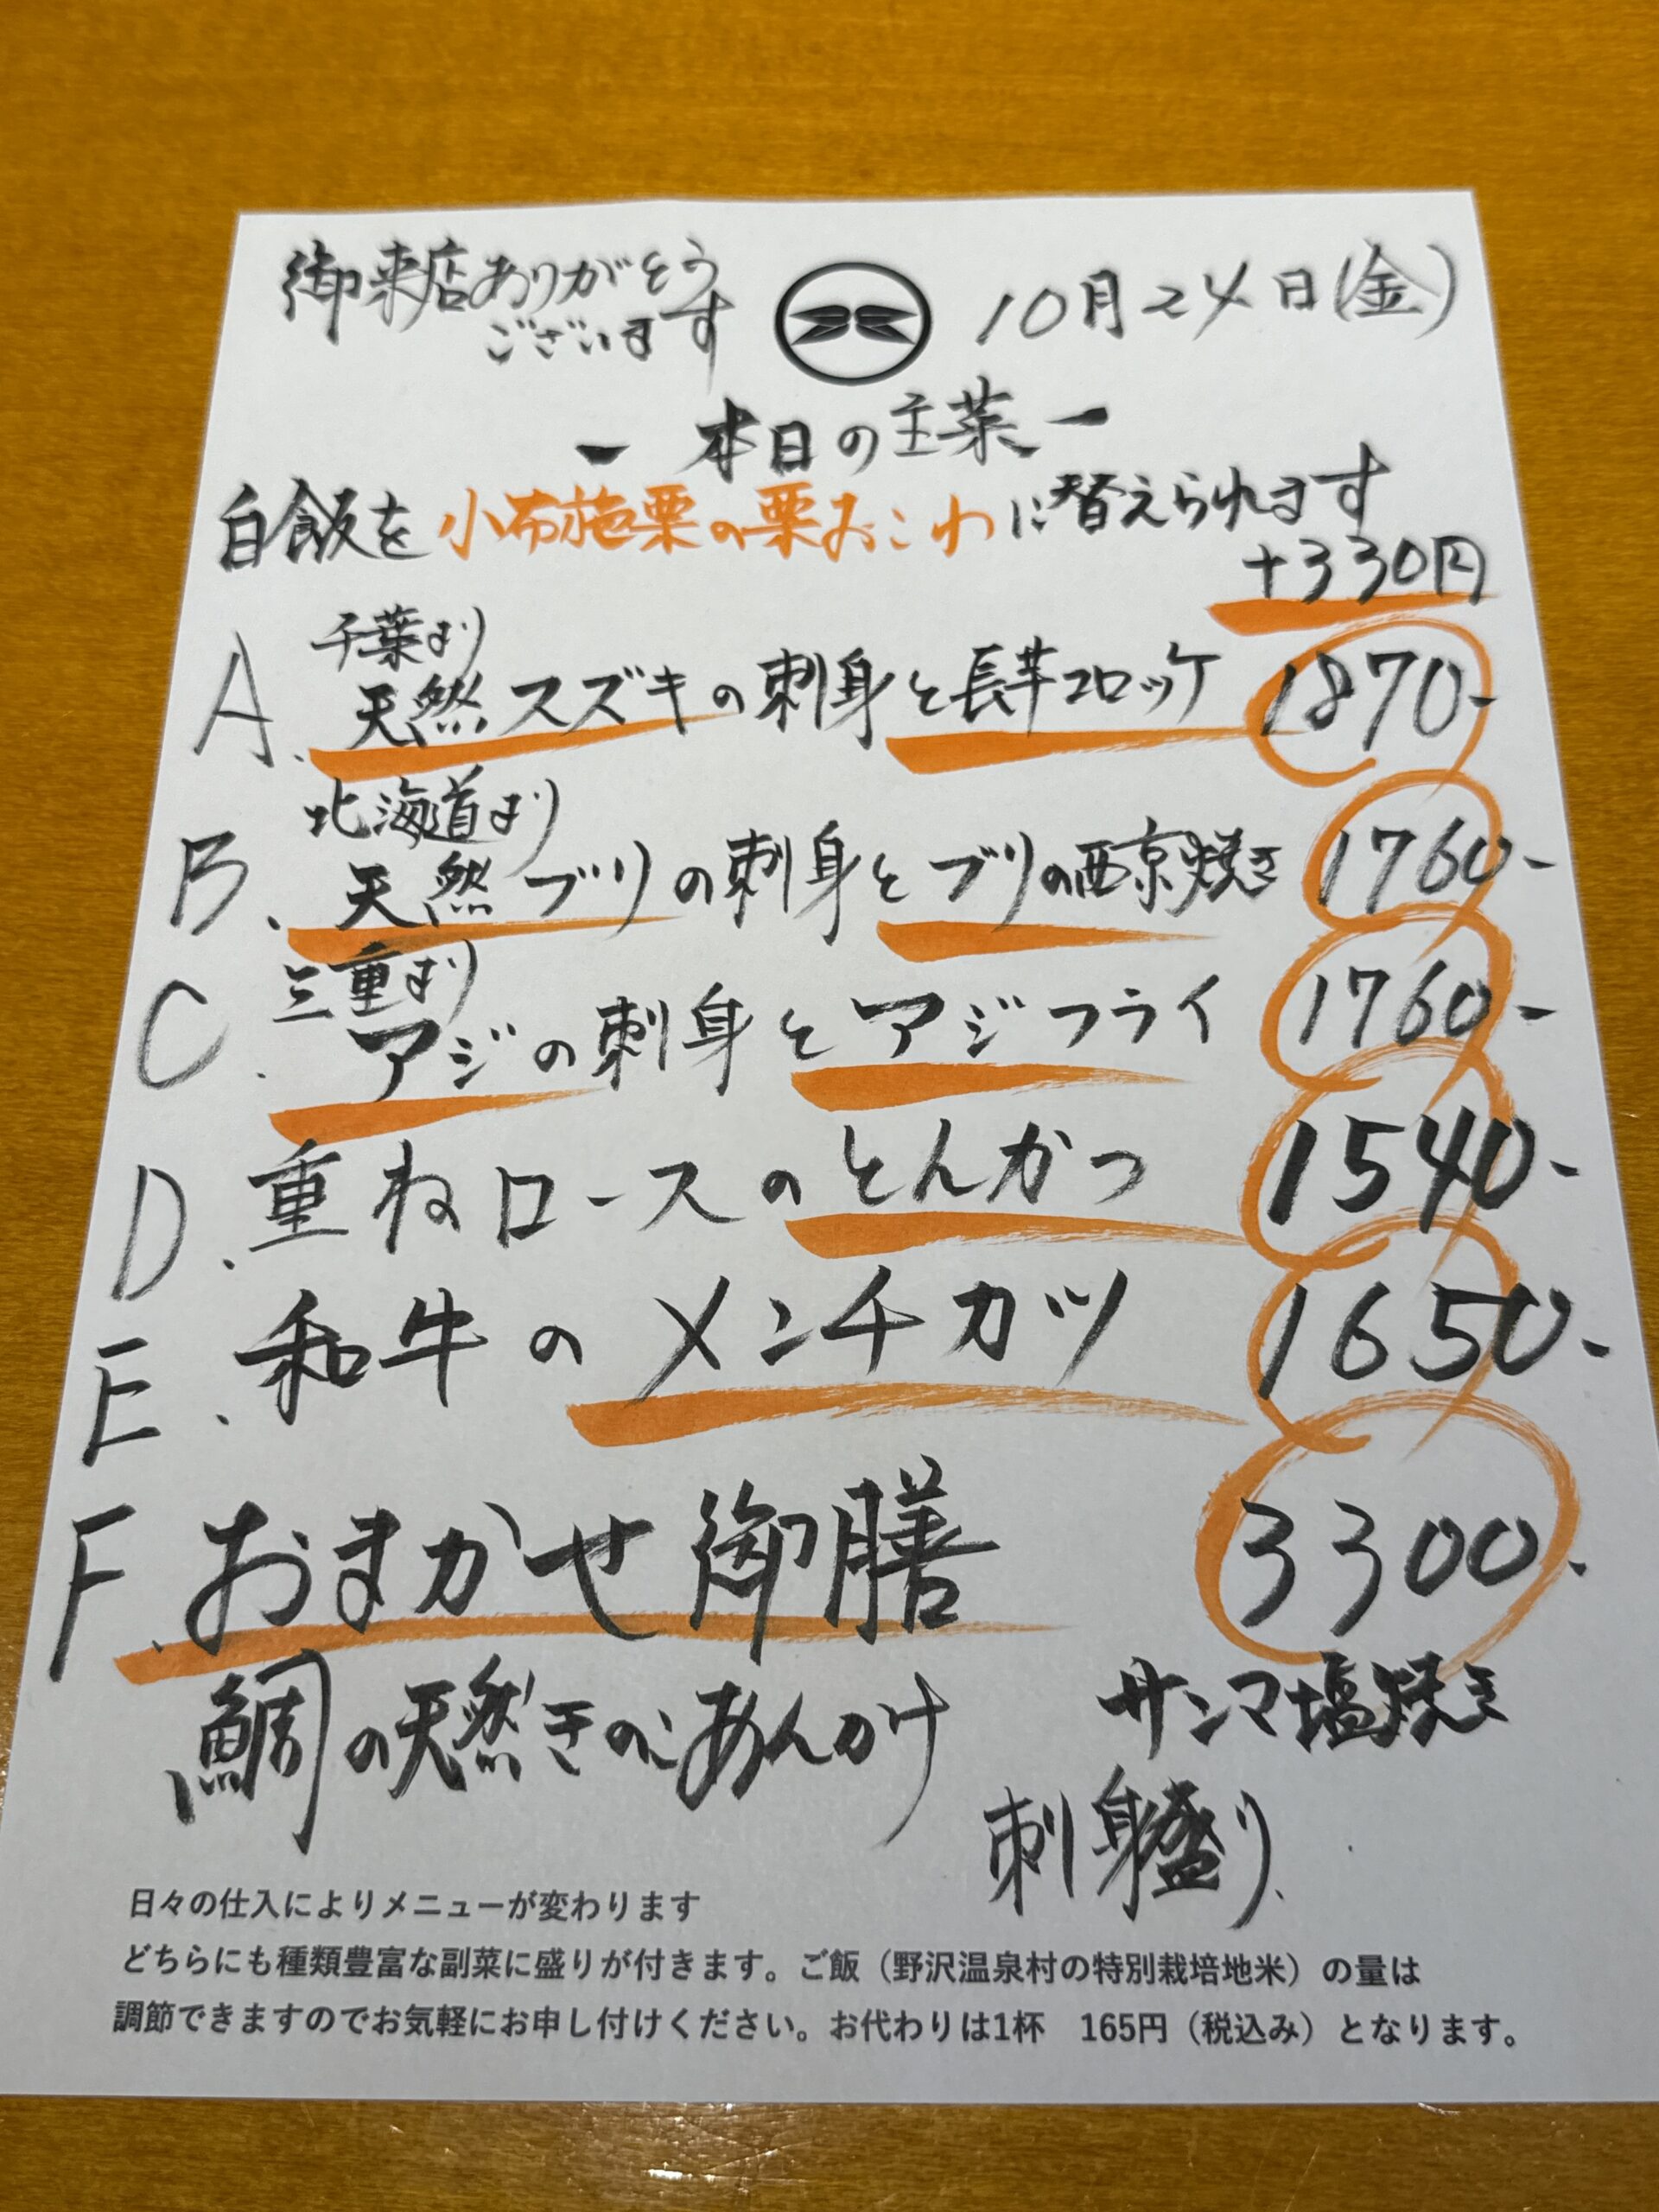 御来店ありがとう
ございます
10月24日(金)
ー 本日の主菜 ー
白飯を小布施栗の栗おこわに替えられます
+330円
千葉より
A. 天然スズキの刺身と長芋コロッケ 1870-
北海道より
B. 天然ブリの刺身とブリの西京焼き 1760-
三重より
C. アジの刺身とアジフライ 1760-
D. 重ねロースのとんかつ 1540-
E. 和牛のメンチカツ 1650-
F. おまかせ御膳 3300.
鯛の天然きのこあんかけ サンマ塩焼き
刺身盛り
日々の仕入によりメニューが変わります
どちらにも種類豊富な副菜に盛りが付きます。ご飯（野沢温泉村の特別栽培地米）の量は
調節できますのでお気軽にお申し付けください。お代わりは1杯　165円（税込み）となります。